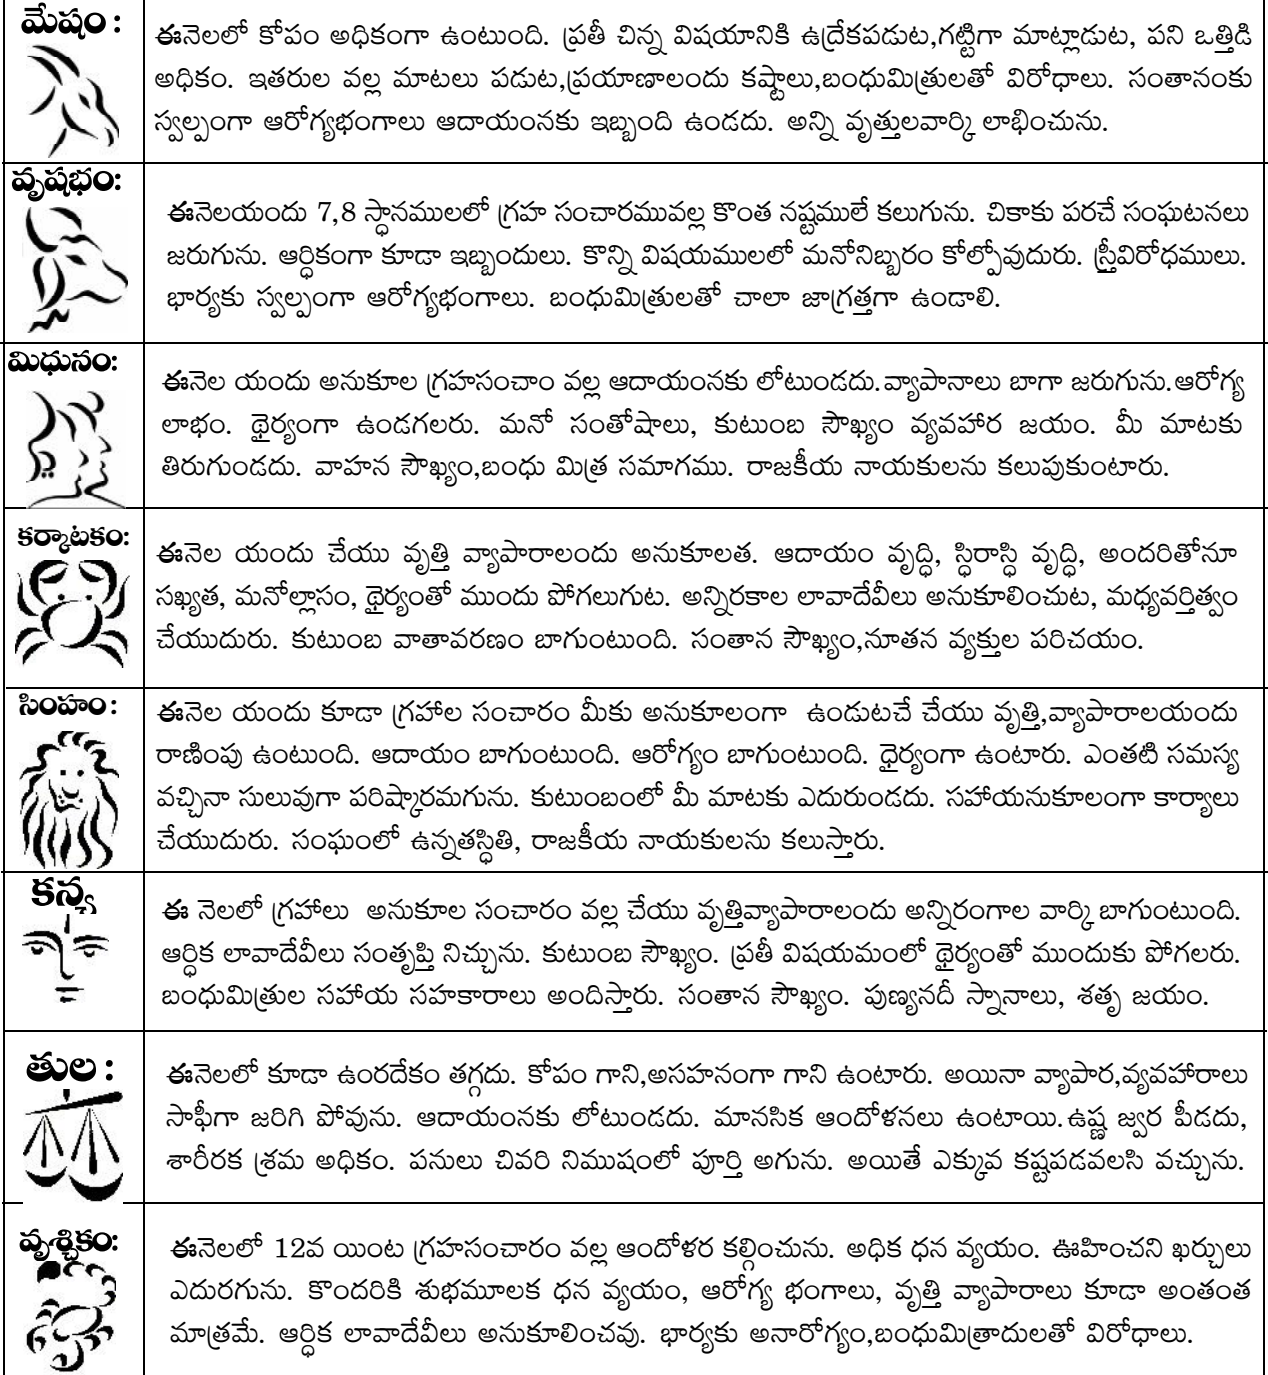 మేషం :
ఈనెలలో కోపం అధికంగా ఉంటుంది. ప్రతీ చిన్న విషయానికి ఉద్రేకపడుట,గట్టిగా మాట్లాడుట, పని ఒత్తిడి
అధికం. ఇతరుల వల్ల మాటలు పడుట,ప్రయాణాలందు కష్టాలు,బంధుమిత్రులతో విరోధాలు. సంతానంకు
స్వల్పంగా ఆరోగ్యభంగాలు ఆదాయంనకు ఇబ్బంది ఉండదు. అన్ని వృత్తులవార్కి లాభించును.
వృషభం:
ఈనెలయందు 7,8 స్థానములలో గ్రహ సంచారమువల్ల కొంత నష్టములే కలుగును. చికాకు పరచే సంఘటనలు
జరుగును. ఆర్ధికంగా కూడా ఇబ్బందులు. కొన్ని విషయములలో మనోనిబ్బరం కోల్పోవుదురు. స్త్రీవిరోధములు.
భార్యకు స్వల్పంగా ఆరోగ్యభంగాలు. బంధుమిత్రులతో చాలా జాగ్రత్తగా ఉండాలి.
మిధునం:
ఈనెల యందు అనుకూల గ్రహసంచాం వల్ల ఆదాయంనకు లోటుండదు.వ్యాపానాలు బాగా జరుగును.ఆరోగ్య
లాభం. థైర్యంగా ఉండగలరు. మనో సంతోషాలు, కుటుంబ సౌఖ్యం వ్యవహార జయం. మీ మాటకు
తిరుగుండదు. వాహన సౌఖ్యం,బంధు మిత్ర సమాగము. రాజకీయ నాయకులను కలుపుకుంటారు.
కర్కాటకం:
ఈనెల యందు చేయు వృత్తి వ్యాపారాలందు అనుకూలత. ఆదాయం వృద్ధి, స్థిరాస్థి వృద్ధి, అందరితోనూ
సఖ్యత, మనోల్లాసం, థైర్యంతో ముందు పోగలుగుట. అన్నిరకాల లావాదేవీలు అనుకూలించుట, మధ్యవర్తిత్వం
చేయుదురు. కుటుంబ వాతావరణం బాగుంటుంది. సంతాన సౌఖ్యం,నూతన వ్యక్తుల పరిచయం.
సింహం :
ఈనెల యందు కూడా గ్రహాల సంచారం మీకు అనుకూలంగా ఉండుటచే చేయు వృత్తి,వ్యాపారాలయందు
రాణింపు ఉంటుంది. ఆదాయం బాగుంటుంది. ఆరోగ్యం బాగుంటుంది. ధైర్యంగా ఉంటారు. ఎంతటి సమస్య
వచ్చినా సులువుగా పరిష్కారమగును. కుటుంబంలో మీ మాటకు ఎదురుండదు. సహాయనుకూలంగా కార్యాలు
చేయుదురు. సంఘంలో ఉన్నతస్థితి, రాజకీయ నాయకులను కలుస్తారు.
కన్య
ఈ నెలలో గ్రహాలు అనుకూల సంచారం వల్ల చేయు వృత్తివ్యాపారాలందు అన్నిరంగాల వార్కి బాగుంటుంది.
ఆర్ధిక లావాదేవీలు సంతృప్తి నిచ్చును. కుటుంబ సౌఖ్యం. ప్రతీ విషయమంలో థైర్యంతో ముందుకు పోగలరు.
బంధుమిత్రుల సహాయ సహకారాలు అందిస్తారు. సంతాన సౌఖ్యం. పుణ్యనదీ స్నానాలు, శతృ జయం.
తుల :
ఈనెలలో కూడా ఉంరదేకం తగ్గదు. కోపం గాని,అసహనంగా గాని ఉంటారు. అయినా వ్యాపార,వ్యవహారాలు
సాఫీగా జరిగి పోవును. ఆదాయంనకు లోటుండదు. మానసిక ఆందోళనలు ఉంటాయి.ఉష్ణ జ్వర పీడదు,
శారీరక శ్రమ అధికం. పనులు చివరి నిముషంలో పూర్తి అగును. అయితే ఎక్కువ కష్టపడవలసి వచ్చును.
వృశ్చికం:
ఈనెలలో 12వ యింట గ్రహసంచారం వల్ల ఆందోళర కల్గించును. అధిక ధన వ్యయం. ఊహించని ఖర్చులు
ఎదురగును. కొందరికి శుభమూలక ధన వ్యయం, ఆరోగ్య భంగాలు, వృత్తి వ్యాపారాలు కూడా అంతంత
మాత్రమే. ఆర్ధిక లావాదేవీలు అనుకూలించవు. భార్యకు అనారోగ్యం,బంధుమిత్రాదులతో విరోధాలు.